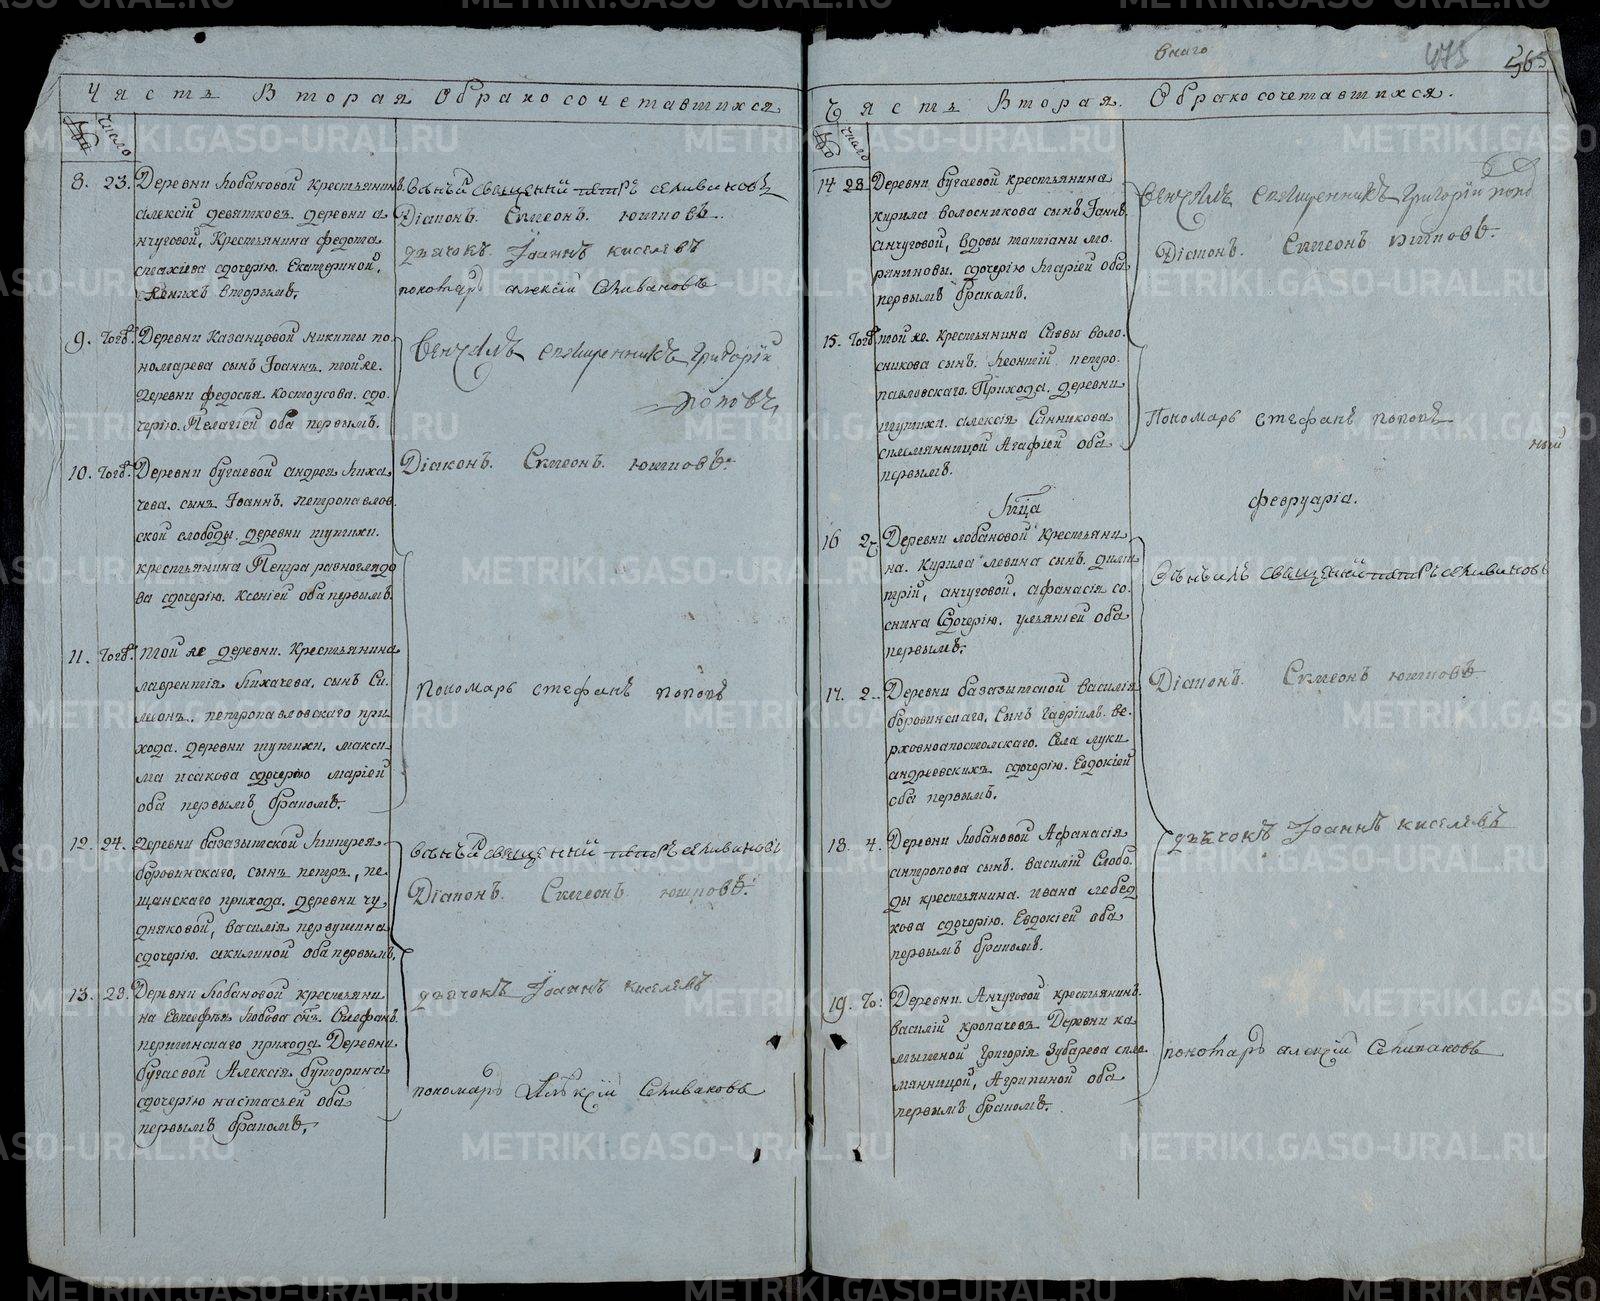 Часть Вторая Обракосочетавшихся
№ число
8. 23. Деревни Лобановой крестьянинъ
алексiй девятковъ деревни а
нчуговой, Крестьянина федота
стахiева сдочерiю. Екатериной,
женихъ вторымъ.
Дiаконъ. Симеонъ. юшковъ.
дьячокъ Iоаннъ киселевъ
пономарь алексiй Селивановъ
9. Тогоже Деревни Казанцовой никиты по
номарева сынъ Iоаннъ. той же.
деревни федосья Костоусова. сдо
черiю. Пелагiей оба первымъ.
Венчалъ священникъ Григорiй
Поповъ
10. Тогоже Деревни бугаевой андрея Лиха
чева. сынъ Iоаннъ. петропавлов
ской слободы. деревни шутихи.
крестьянина Петра равноглядо
ва сдочерiю. Ксенiей оба первымъ.
Дiаконъ. Симеонъ. юшковъ.
11. Тогоже той же деревни. Крестьянина
лаврентiя Лихачева. сынъ Си
меонъ. петропавловскаго при
хода. деревни шутихи. макси
ма исакова сдочерiю марiей
оба первымъ бракомъ.
Пономарь стефанъ поповъ
12. 24. Деревни базазытской
боровинскаго, сынъ петръ, пе
щанскаго прихода. деревни чу
дняковой, василiя первушина
сдочерiю. акилиной оба первымъ.
Дiаконъ. Симеонъ. юшковъ.
13. 28. Деревни Лобановой крестьяни
на Евсефья Лобова сынъ. Стефанъ.
прихода Деревни
бугаевой Алексiя бунторина
сдочерiю настасьей оба
первымъ бракомъ.
дьячокъ Iоаннъ киселевъ
пономарь Алексiй Селивановъ
565
Часть Вторая. Обракосочетавшихся.
№ число
14 28. Деревни бугаевой крестьянина
кирила волосникова сынъ Iоаннъ.
анчуговой, вдовы татiаны мо
ряниновы. сдочерiю Марiей оба
первымъ бракомъ.
Венчалъ священникъ Григорiй попо
Дiаконъ. Симеонъ юшковъ.
15. Тогоже той же. крестьянина Саввы воло
сникова сынъ. Леонтiй петро
павловскаго Прихода. деревни
шутихи. алексiя Санникова
сплемянницой Агафiей оба
первымъ.
Пономарь стефанъ поповъ
М̃ца февруарiа.
16 2. Деревни лобановой крестьяни
на. Кирила левина сынъ. дими
трiй, анчуговой, афанасiя со
снина Сдочерiю. ульянiей оба
первымъ.
17. 2. Деревни базазытской василiя
боровинскаго. Сынъ гаврiилъ. ве
рховноапостолскаго. Села луки
андреевскихъ сдочерiю. Евдокiей
оба первымъ.
Дiаконъ. Симеонъ юшковъ
18. 4. Деревни Лобановой Афанасiя
антропова сынъ. василiй Слобо
ды крестьянина. ивана лебед
кова сдочерiю. Евдокiей оба
первымъ бракомъ.
дьячокъ Iоаннъ киселевъ
19. То: Деревни Анчуговой крестьянинъ.
василiй кропачевъ Деревни ка
мышной Григорiя Зубарева спле
мянницой, Агрипиной оба
первымъ бракомъ.
пономарь алексiй Селивановъ
METRIKI.GASO-URAL.RU